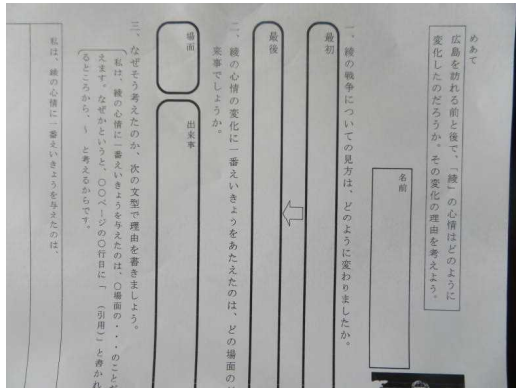 めあて
広島を訪れる前と後で、「綾」の心情はどのように
変化したのだろうか。その変化の理由を考えよう。
名前
一、綾の戦争についての見方は、どのように変わりましたか。
最初
最後
二、綾の心情の変化に一番えいきょうをあたえたのは、どの場面の
来事でしょうか。
場面
出来事
三、なぜそう考えたのか、次の文型で理由を書きましょう。
私は、綾の心情に一番えいきょうを与えたのは、〇場面の・・・のことだ
えます。なぜかというと、〇〇ページの〇行目に「 (引用)」と書かれ
るところから、～ と考えるからです。
私は、綾の心情に一番えいきょうを与えたのは、